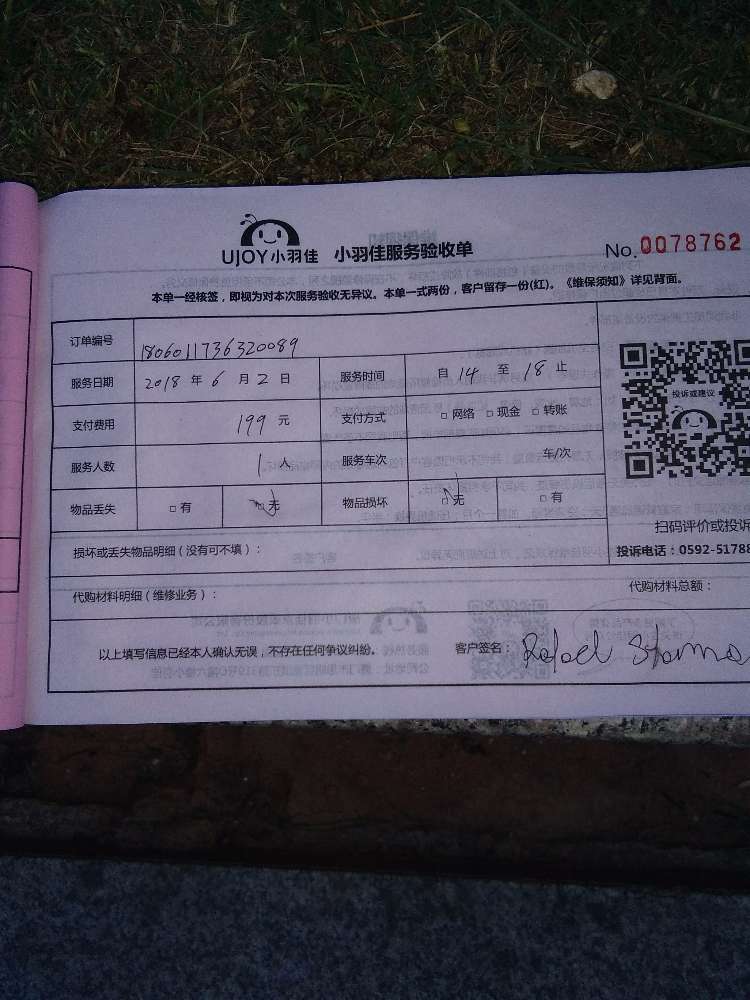 UJOY小羽佳 小羽佳服务验收单 No.0078762
本单一经核签，即视为对本次服务验收无异议。本单一式两份，客户留存一份(红)。《维保须知》详见背面。
订单编号 1806011736320089
服务日期 2018 年 6 月 2 日 服务时间 自 14 至 18 止
投诉或建议
支付费用 199 元 支付方式 □ 网络 □ 现金 □ 转账
服务人数 1 人 服务车次 车/次
物品丢失 □ 有 □ 无 物品损坏 □ 无 □ 有
扫码评价或投诉
损坏或丢失物品明细（没有可不填）：
投诉电话：0592-51788
代购材料明细（维修业务）： 代购材料总额：
以上填写信息已经本人确认无误，不存在任何争议纠纷。 客户签名： Rafael